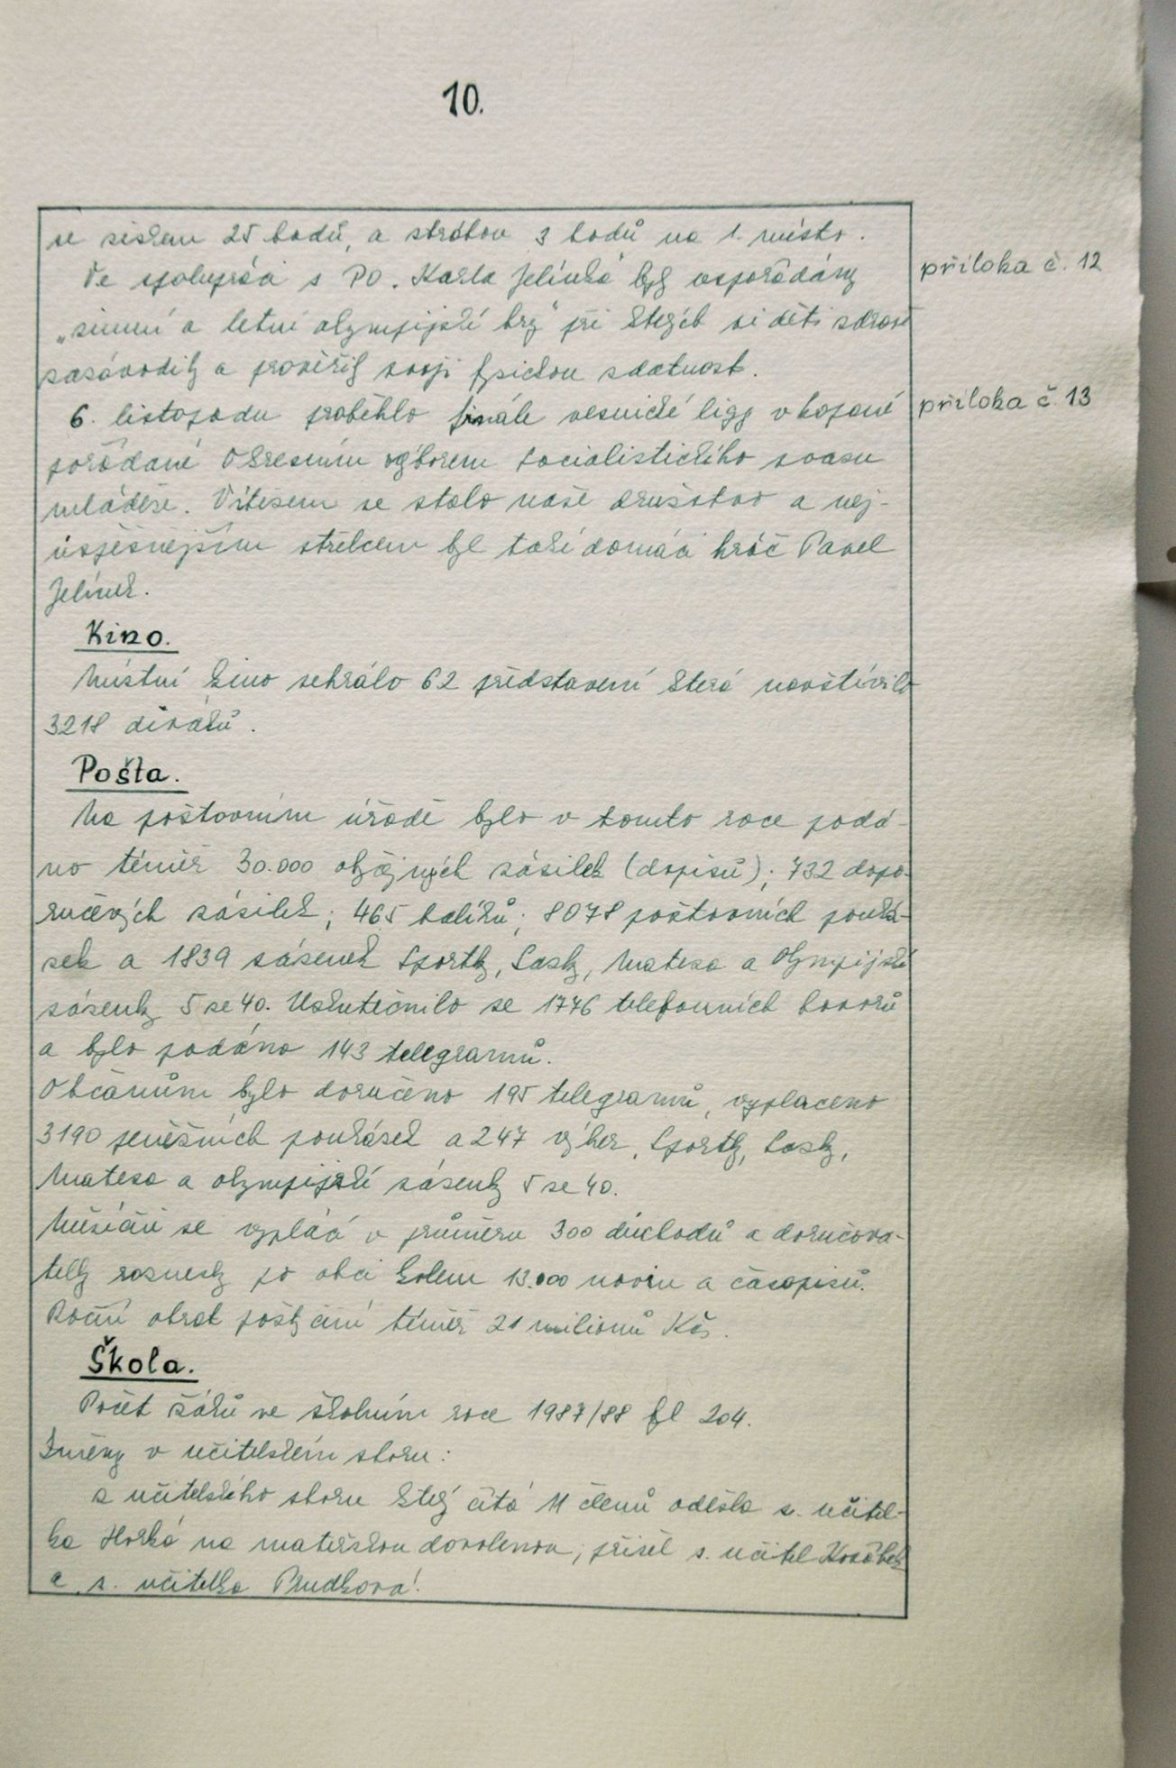 10.
se ziskem 25 bodů, a ztrátou 3 bodů na 1. místo.
Ve spolupráci s PO. Karla Jelínka byly uspořádány
příloha č. 12
„zimní a letní olympijské hry" při kterých si děti zdravě
zazávodily a prověřily svoji fyzickou zdatnost.
6. listopadu proběhlo finále vesnické ligy v kopané
příloha č. 13
pořádané Okresním výborem Socialistického svazu
mládeže. Vítězem se stalo naše družstvo a nej-
úspěšnějším střelcem byl také domácí hráč Pavel
Jelínek.
Kino.
Místní kino sehrálo 62 představení která navštívilo
3218 diváků.
Pošta.
Na poštovním úřadě bylo v tomto roce podá-
no téměř 30.000 obyčejných zásilek (dopisů); 732 dopo-
ručených zásilek; 465 balíků; 8078 poštovních pouká-
zek a 1839 sázenek Sportky, Sazky, Matesa a Olympijské
sázenky 5 ze 40. Uskutečnilo se 1776 telefonních hovorů
a bylo podáno 143 telegramů.
Občanům bylo doručeno 195 telegramů, vyplaceno
3190 peněžních poukázek a 247 výher, Sportky, Sazky,
Matesa a olympijské sázenky 5 ze 40.
Měsíčně se vyplácí v průměru 300 důchodů a doručova-
telky roznesly po obci kolem 13.000 novin a časopisů.
Roční obrat pošty činí téměř 21 milionů Kčs.
Škola.
Počet žáků ve školním roce 1987/88 byl 204.
Změny v učitelském sboru:
z učitelského sboru který čítá 11 členů odešla s. učitel-
ka Horká na mateřskou dovolenou, přišel s. učitel
a s. učitelka Prudkova.